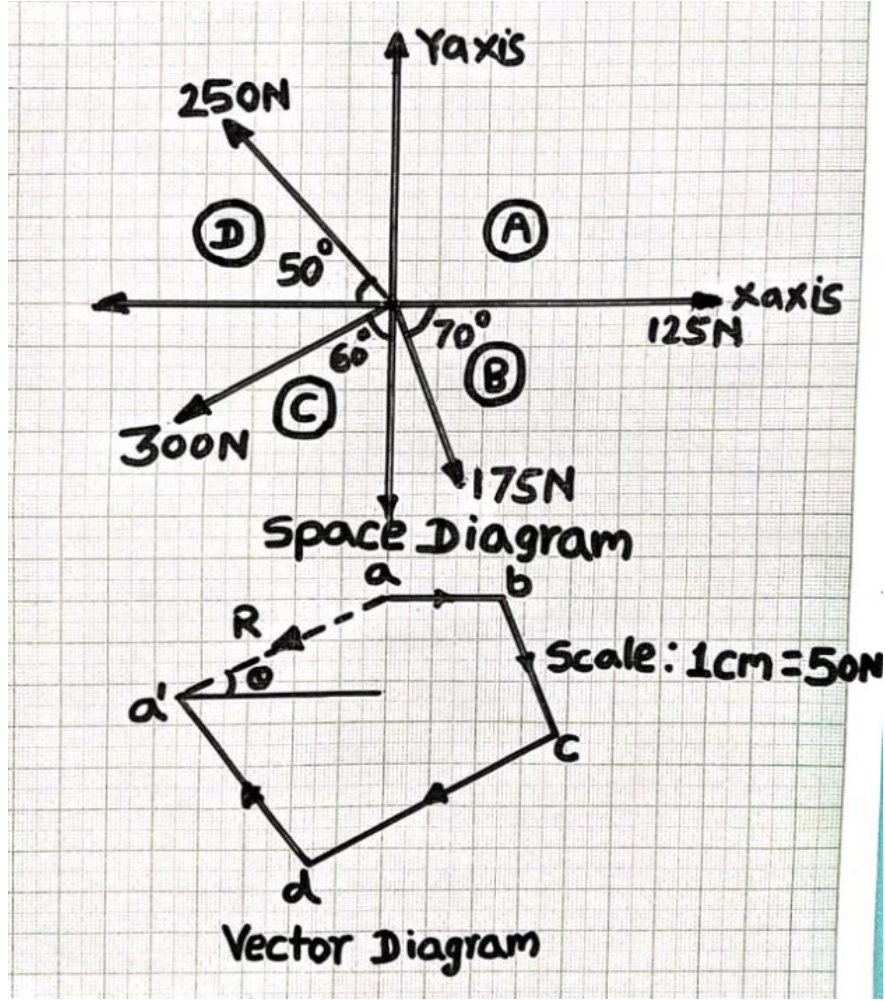 Yaxis
250N
D
A
50°
xaxis
125N
60°
70°
B
C
300N
175N
Space Diagram
a
b
R
Scale: 1cm = 50N
θ
a'
c
d
Vector Diagram